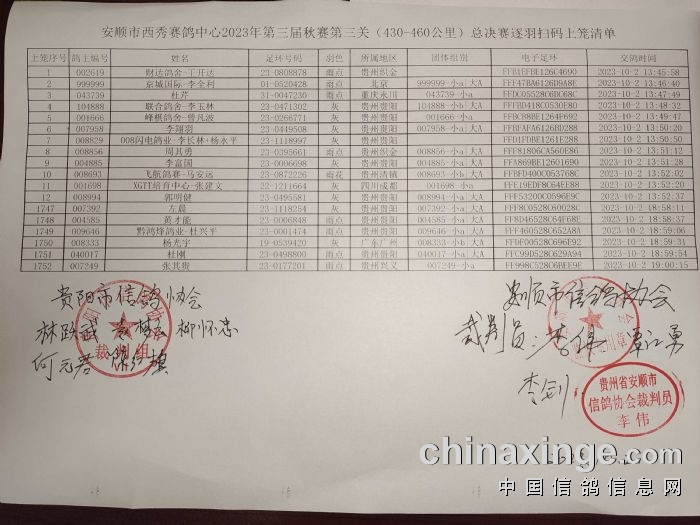 安顺市西秀赛鸽中心2023年第三届秋赛第三关（430-460公里）总决赛逐羽扫码上笼清单
上笼序号 鸽主编号 姓名 足环号码 羽色 所属地区 团体组别 电子足环 交鸽时间
1 002619 财达鸽舍-王开达 23-0808878 雨点 贵州织金 FFB1EFBE126C4690 2023-10-2 13:45:58
2 999999 京城国际-李全利 01-0520428 雨点 北京 999999 小a 大A FFF47BA6126D9A8F 2023-10-2 13:46:40
3 043739 杜芹 31-0047230 雨点 重庆永川 043739-小a FFDC05528C6DC68C 2023-10-2 13:47:49
4 104888 联合鸽舍-李玉林 23-0471302 灰 贵州贵阳 104888-小b 大A FFFBD418C0530E80 2023-10-2 13:48:32
5 001666 峰棋鸽舍-曾凡波 23-0266771 灰 贵州贵阳 001666-小a FFBCB8BE1264F692 2023-10-2 13:49:47
6 007958 李翔羽 23-0449508 灰 贵州贵阳 007958-小a 大A FFBFAFA6126BD288 2023-10-2 13:50:20
7 008829 008闪电鸽业-李长林+杨永平 23-1118997 灰 贵州贵阳 FFD1FDBE1261E28E 2023-10-2 13:50:50
8 008856 周其勇 23-0395661 雨点 贵州贵阳 008856-小a 大A FFF81806CA560E86 2023-10-2 13:51:12
9 004885 李富国 23-0006698 灰 贵州贵阳 004885-小a 大A FFA869BE12601690 2023-10-2 13:51:28
10 008693 飞航鸽赛-马安远 23-0872226 雨花 贵州清镇 008693-小b 大A FFBFD400C053768C 2023-10-2 13:52:02
11 001698 XGTT培育中心-张建文 22-1211664 灰 四川成都 001698-小a FFE19EDF8C64EE88 2023-10-2 13:52:20
12 008994 郭明健 23-0495581 灰 贵州贵阳 008994-小a 大A FFF53200C0596E9C 2023-10-2 13:52:37
1747 007392 左晨 23-1118254 灰 贵州贵阳 007392-小a 大A FFF8C0528C60028C 2023-10-2 18:58:11
1748 004585 黄才能 23-0006848 雨点 贵州贵阳 004585-小a 大A FF8D46528C64F68E 2023-10-2 18:58:37
1749 009646 黔鸿烽鸽业-杜兴平 23-0001474 雨点 贵州贵阳 009646-小b 大A FFF460528C452A8A 2023-10-2 18:59:06
1750 008333 杨光宇 19-0539420 灰 广东广州 008333-小b 大A FFDF00528C696E92 2023-10-2 18:59:31
1751 040017 杜刚 23-0498800 雨点 贵州贵阳 040017-小b 大A FF0F00528C64E694 2023-10-2 18:59:54
1752 007249 张其贵 23-0177201 雨点 贵州兴义 007249-小a FFC998C528C6BEE9E 2023-10-2 19:00:15
贵阳市信鸽协会
林跃武 柳怀忠
何元君
裁判组
安顺市信鸽协会
裁判员: 李伟 覃江勇
李剑
贵州省安顺市
信鸽协会裁判员
李伟
chinaxinge.com
中国信鸽信息网